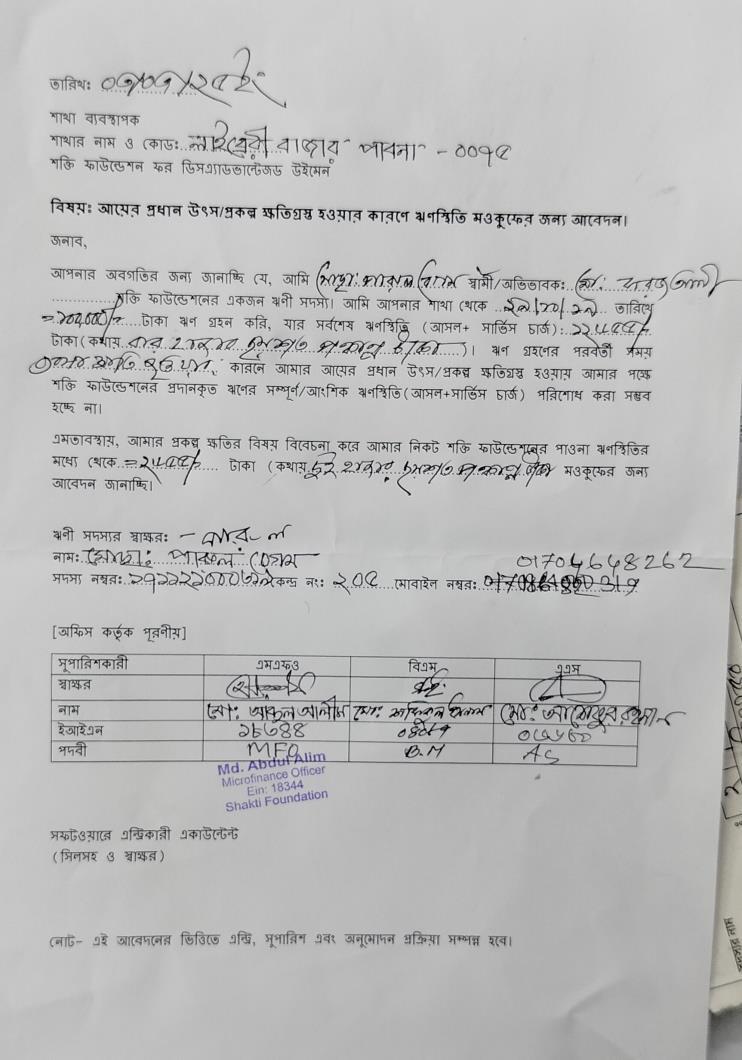 তারিখঃ ০৭/০৭/২৫ ইং
শাখা ব্যবস্থাপক
শাখার নাম ও কোডঃ লাইব্রেরী বাজার পাবনা - ০০৭৫
শক্তি ফাউন্ডেশন ফর ডিসএ্যাডভান্টেজড উইমেন
বিষয়ঃ আয়ের প্রধান উৎস/প্রকল্প ক্ষতিগ্রস্ত হওয়ার কারণে ঋণস্থিতি মওকুফের জন্য আবেদন।
জনাব,
আপনার অবগতির জন্য জানাচ্ছি যে, আমি স্বামী/অভিভাবকঃ মোঃ
শক্তি ফাউন্ডেশনের একজন ঋনী সদস্য। আমি আপনার শাখা থেকে তারিখে
টাকা ঋণ গ্রহন করি, যার সর্বশেষ ঋণস্থিতি (আসল+ সার্ভিস চার্জ):
টাকা(কথায় বার হাজার টাকা)। ঋণ গ্রহণের পরবর্তী সময়
কারনে আমার আয়ের প্রধান উৎস/প্রকল্প ক্ষতিগ্রস্ত হওয়ায় আমার পক্ষে
শক্তি ফাউন্ডেশনের প্রদানকৃত ঋণের সম্পূর্ণ/আংশিক ঋণস্থিতি(আসল+সার্ভিস চার্জ) পরিশোধ করা সম্ভব
হচ্ছে না।
এমতাবস্থায়, আমার প্রকল্প ক্ষতির বিষয় বিবেচনা করে আমার নিকট শক্তি ফাউন্ডেশনের পাওনা ঋণস্থিতির
মধ্যে থেকে টাকা (কথায় দুই হাজার মওকুফের জন্য
আবেদন জানাচ্ছি।
ঋনী সদস্যর স্বাক্ষরঃ -
নামঃ মোছাঃ পারুল বেগম 01704648262
সদস্য নম্বরঃ কেন্দ্র নংঃ ২০৫ মোবাইল নম্বরঃ
[অফিস কর্তৃক পূরণীয়]
সুপারিশকারী এমএফও বিএম এএস
স্বাক্ষর
নাম মোঃ আব্দুল আলীম মোঃ মোঃ
ইআইএন ১৮৩৪৪
পদবী MFO B.M AS
Md. Abdul Alim
Microfinance Officer
Ein: 18344
Shakti Foundation
সফটওয়ারে এন্ট্রিকারী একাউন্টেন্ট
(সিলসহ ও স্বাক্ষর)
নোট- এই আবেদনের ভিত্তিতে এন্ট্রি, সুপারিশ এবং অনুমোদন প্রক্রিয়া সম্পন্ন হবে।